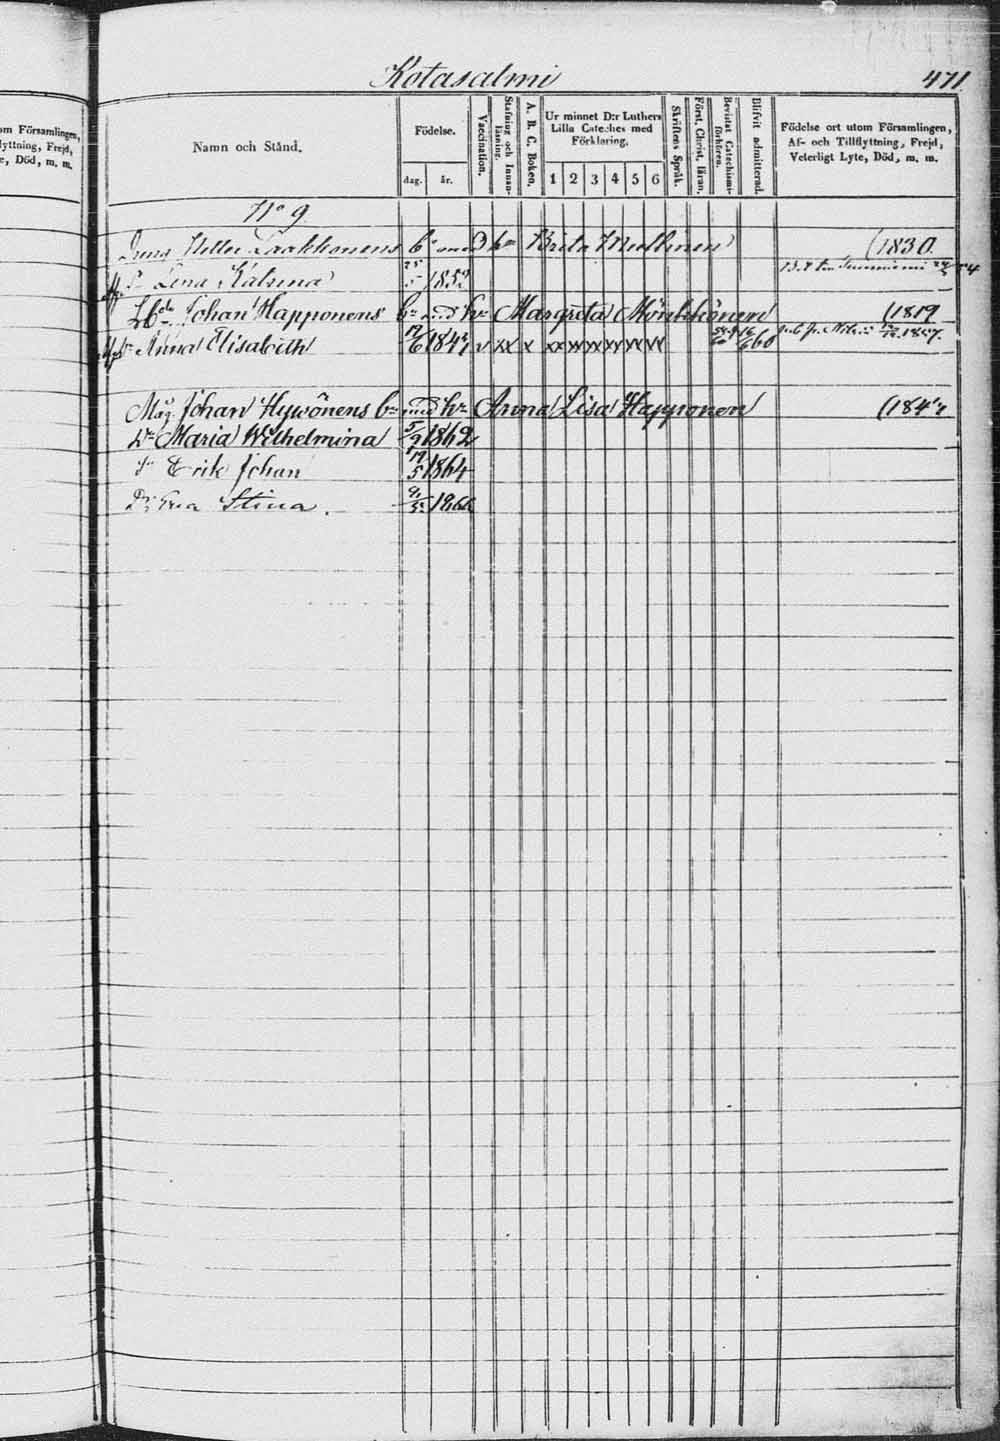 Kotasalmi 471
om Församlingen,
lyttning, Frejd,
e, Död, m. m.
Namn och Stånd.
Födelse.
dag. år.
Vaccination.
Stafning och Innan-läsning.
A. B. C. Boken.
Ur minnet D:r Luthers
Lilla Cateches med
Förklaring.
1 2 3 4 5 6
Skriftens Språk.
Först. Christ. läran.
Bevistat Catechismi-förhören.
Blifvit admitterad.
Födelse ort utom Församlingen,
Af- och Tillflyttning, Frejd,
Veterligt Lyte, Död, m. m.
No 9
Dreng Petter Laakkonens med Brita (1830
Lena Katrina
Johan Happonens bn med hu Margreta Mönkkönen (1819
Anna Elisabeth 12/6 1847 v xx x xx xx xx xx xx xx
Mag. Johan Hywönens bn med hu Anna Lisa Happonen (1847
Dr Maria Wilhelmina 5/9 1862
Sn Erik Johan 19/5 1864
Dr Eva Stina 1866